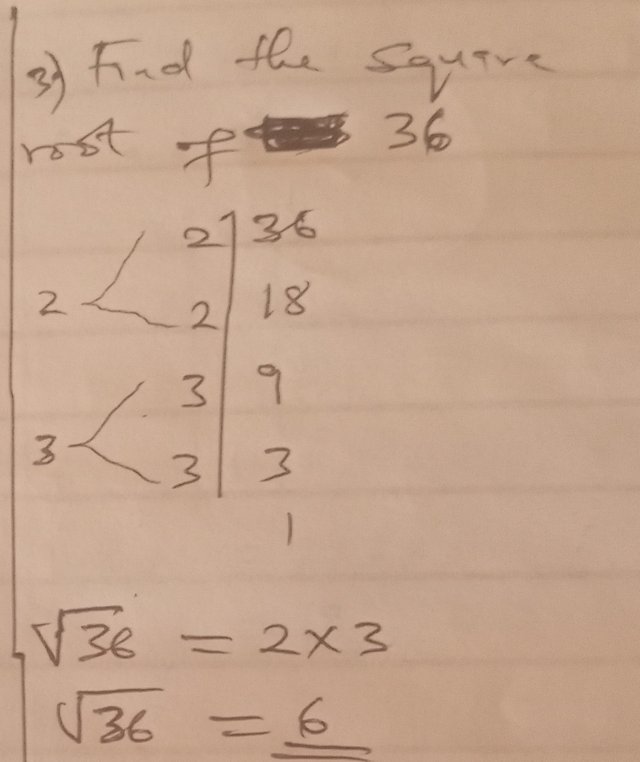 3) Find the square
root of 36
2 2 36
2 18
3 3 9
3 3
1
√36 = 2 × 3
√36 = 6